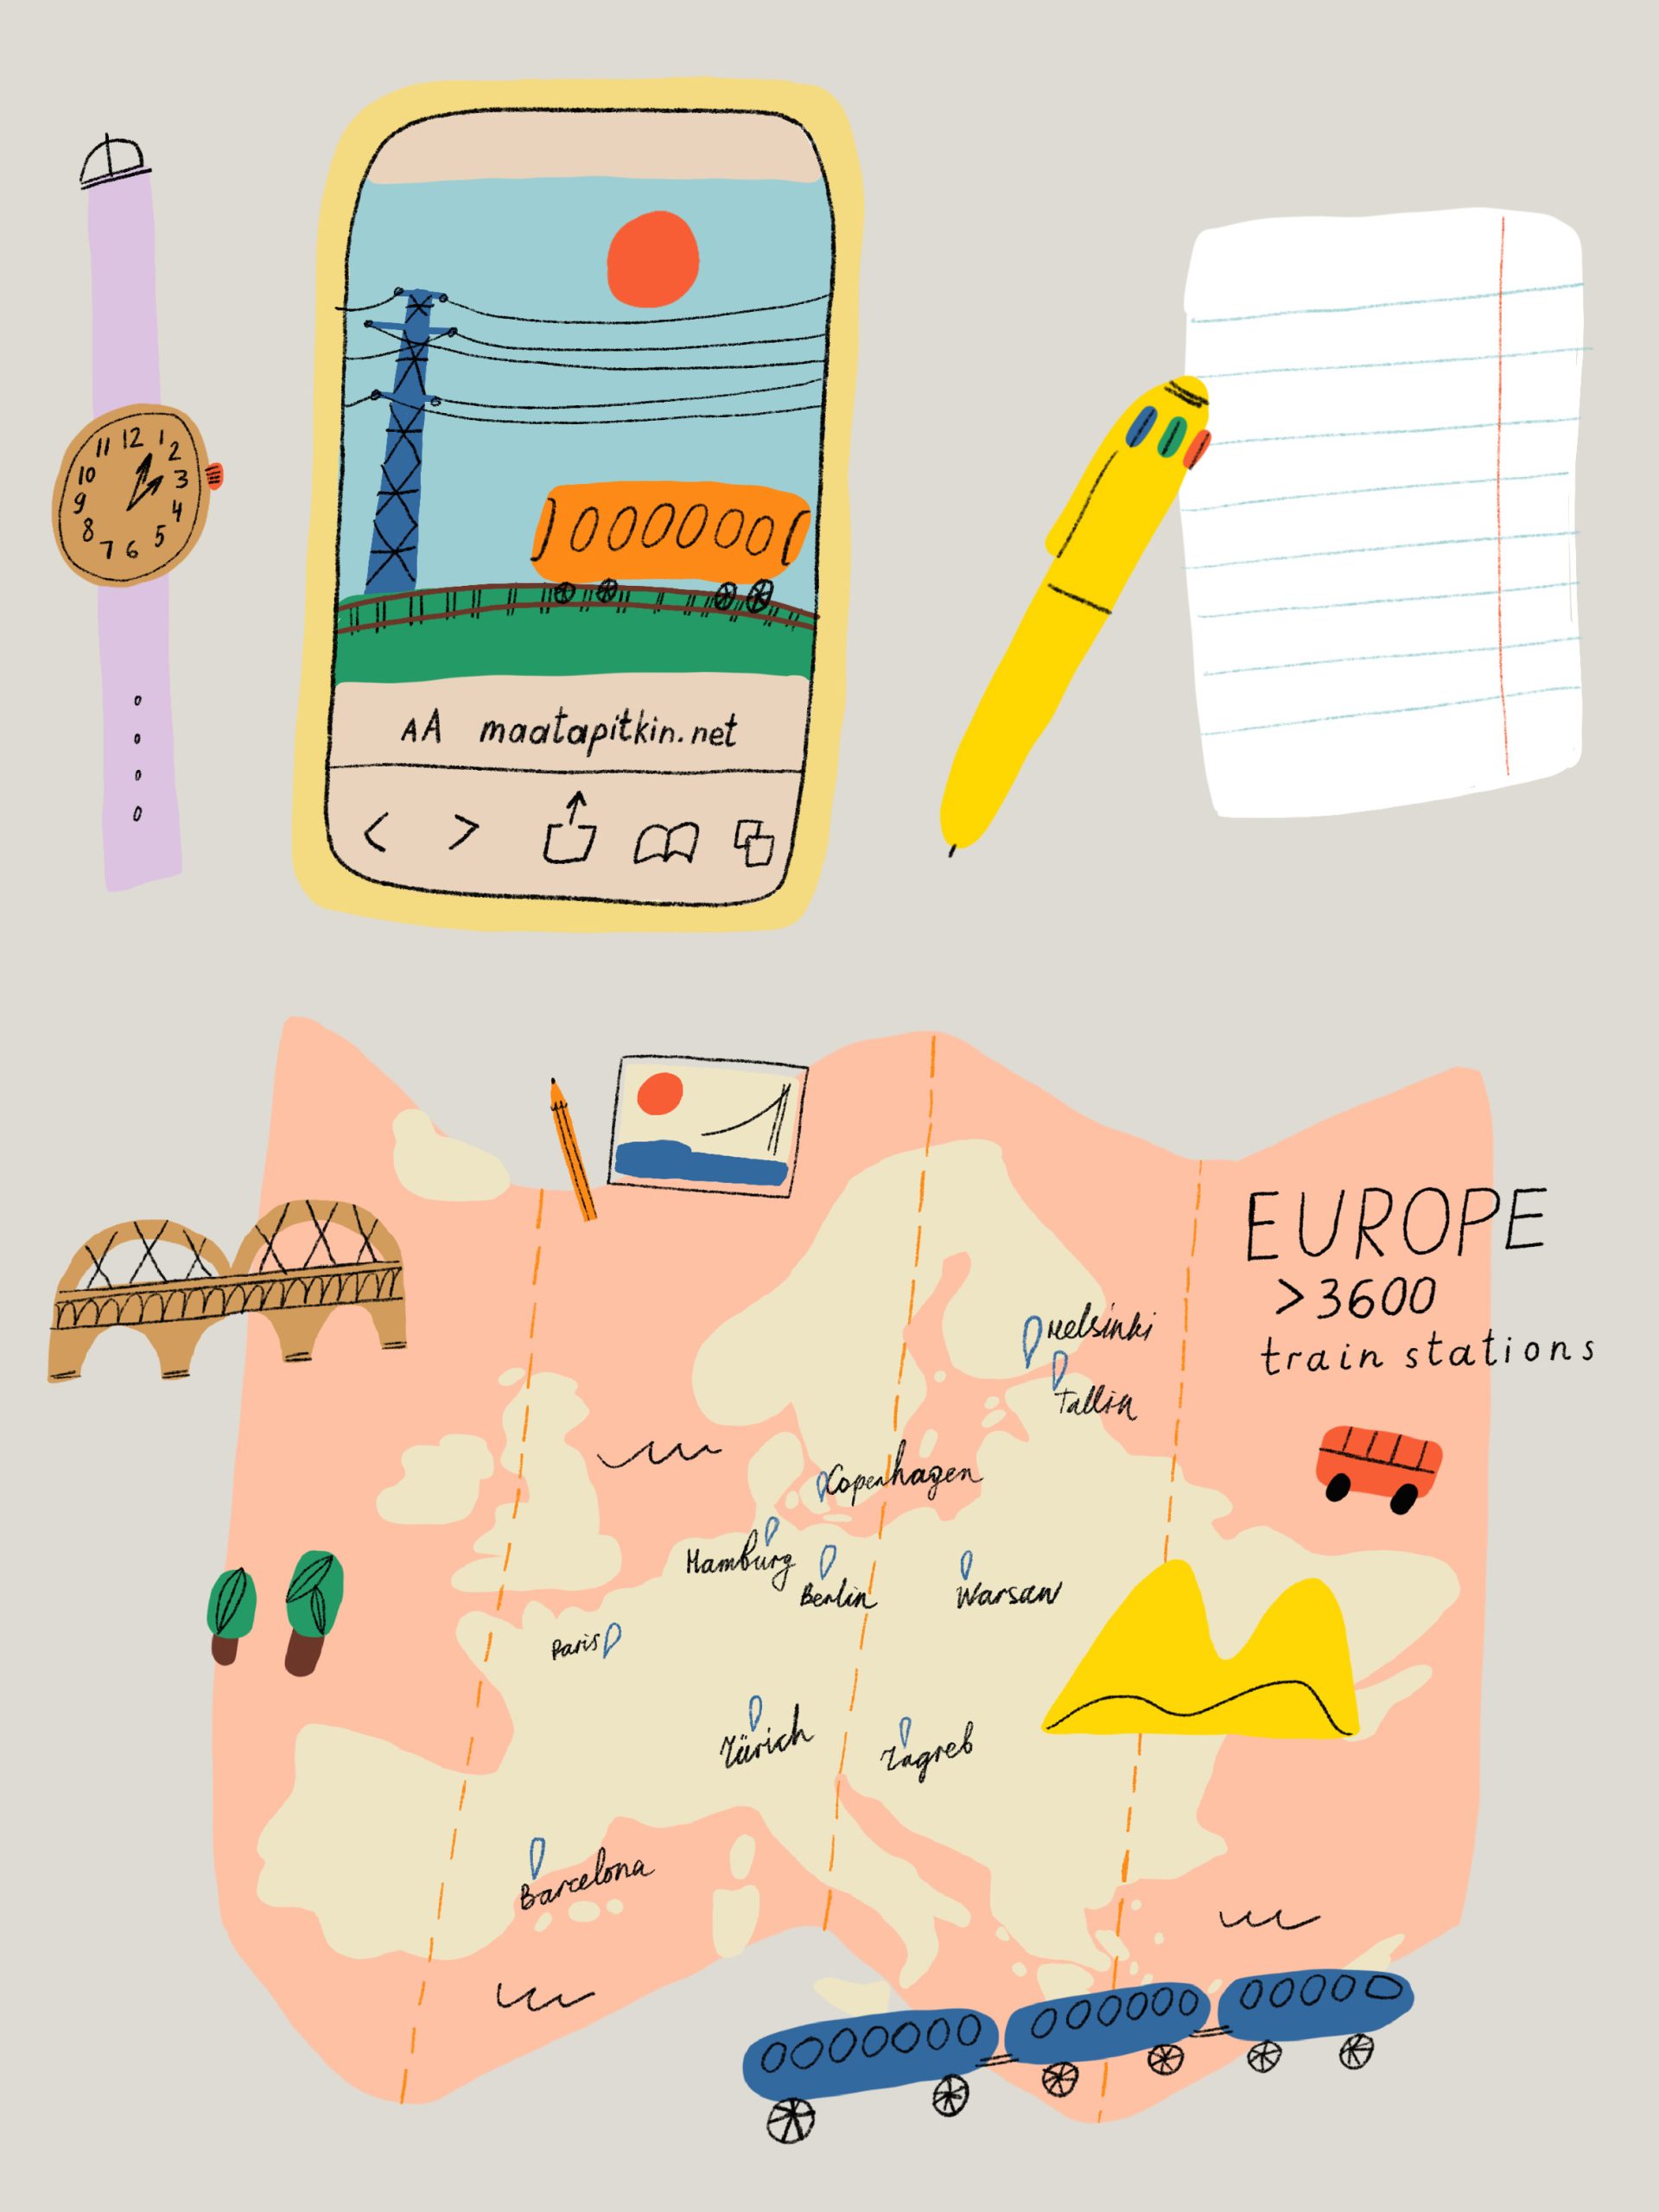 12
1
2
3
4
5
6
7
8
9
10
11
AA maatapitkin.net
EUROPE
>3600
train stations
Helsinki
Tallin
Copenhagen
Hamburg
Berlin
Warsaw
Paris
Zürich
Zagreb
Barcelona